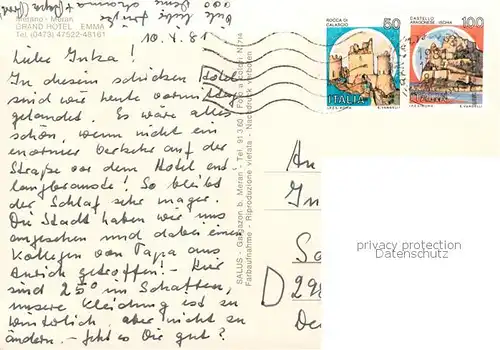 Merano - Meran
GRAND HOTEL EMMA
Tel. (0473) 47522-48161
10. X. 81
Liebe Inka!
In diesem schicken Hotel
sind wir heute vormittag
gelandet. Es wäre alles
schön, wenn nicht ein
enormer Verkehr auf der
Straße vor dem Hotel ent-
langbrauste! So bleibt
der Schlaf sehr mager.
Die Stadt haben wir uns
angesehen und dabei einen
Kollegen von Papa aus
Aurich getroffen! - Hier
sind 25° im Schatten,
unsere Kleidung ist zu
winterlich, aber nicht zu
ändern. - Geht es Dir gut?
SALUS - Gargazon b. Meran - Tel. 91 3 60
Farbaufnahme - Riproduzione vietata - Nachdruck verboten
ROCCA DI
CALASCIO
50
ITALIA
CASTELLO
ARAGONESE ISCHIA
100
An
D 29
privacy protection
Datenschutz